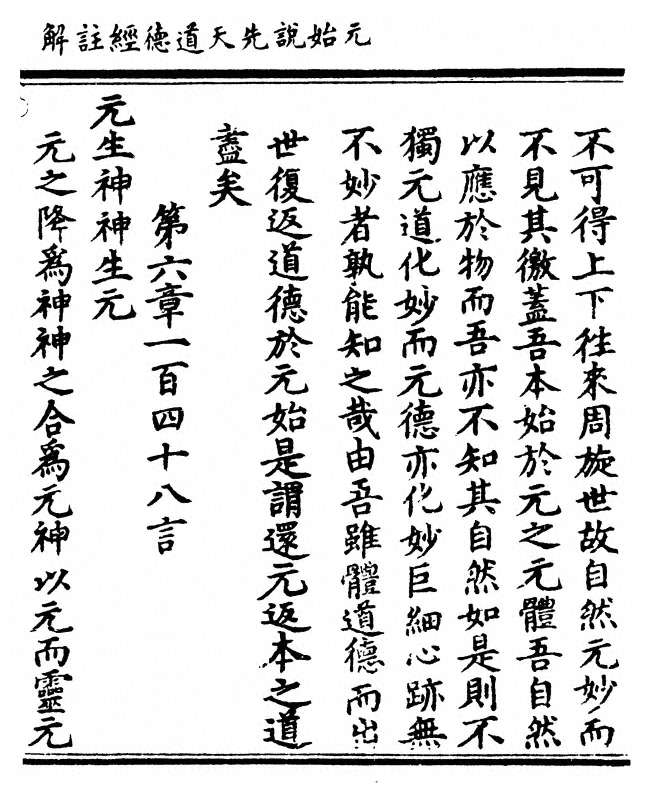 元始說先天道德經註解
不可得上下往來周旋世故自然元妙而
不見其徼蓋吾本始於元之元體吾自然
以應於物而吾亦不知其自然如是則不
獨元道化妙而元德亦化妙巨細心跡無
不妙者孰能知之哉由吾雖體道德而出
世復返道德於元始是謂還元返本之道
盡矣
第六章一百四十八言
元生神神生元
元之降爲神神之合爲元神以元而靈元